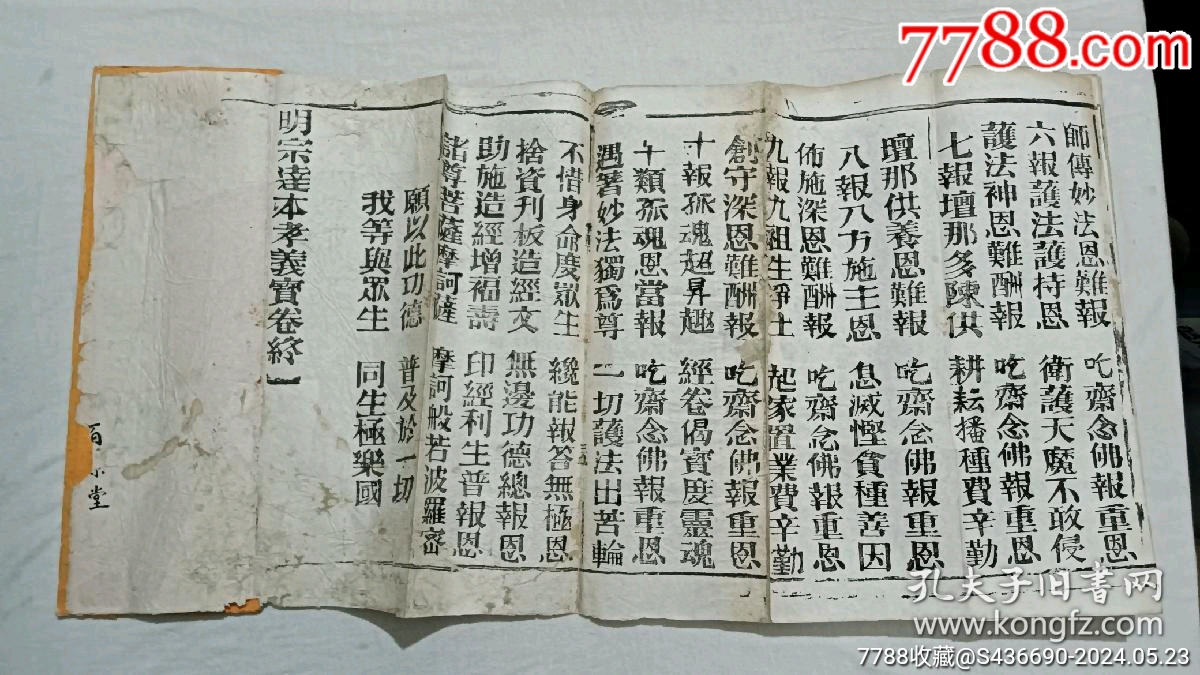 7788.com
師傳妙法恩難報 吃齋念佛報重恩
六報護法護持恩 衛護天魔不敢侵
護法神恩難酬報 吃齋念佛報重恩
七報壇那多陳供 耕耘播種費辛勤
壇那供養恩難報 吃齋念佛報重恩
八報八方施主恩 息滅慳貪種善因
佈施深恩難酬報 吃齋念佛報重恩
九報九祖生淨土 起家置業費辛勤
創守深恩難酬報 吃齋念佛報重恩
十報孤魂超昇趣 經卷偈寳度靈魂
十類孤魂恩當報 吃齋念佛報重恩
遇著妙法獨爲尊 一切護法出苦輪
不惜身命度眾生 纔能報答無極恩
捨資刊板造經文 無邊功德總報恩
助施造經增福壽 印經利生普報恩
諸尊菩薩摩訶薩 摩訶般若波羅密
願以此功德 普及於一切
我等與眾生 同生極樂國
明宗達本孝義寳卷終
堂
孔夫子旧书网
www.kongfz.com
7788收藏@S436690-2024.05.23